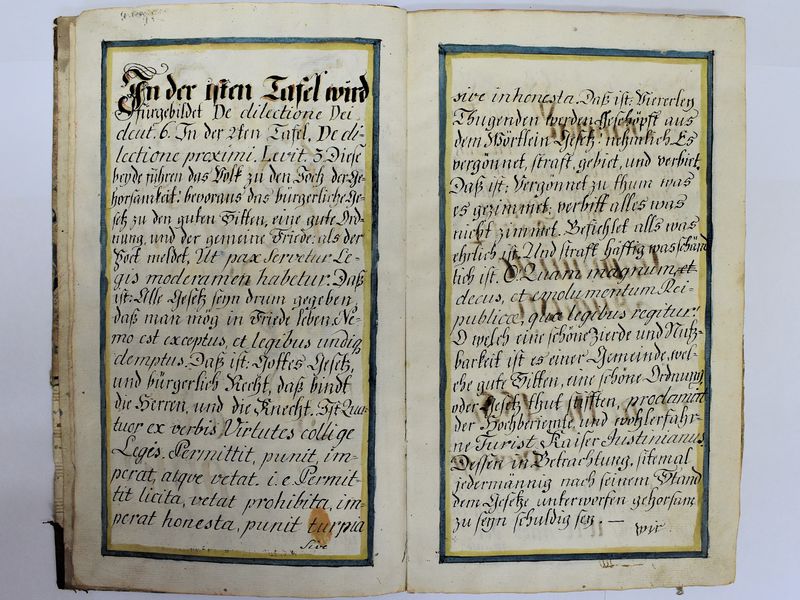 In der 1sten Tafel wird
fürgebildet De dilectione Dei
deut. 6. In der 2ten Tafel, De di-
lectione proximi. Levit. 3. Diese
beyde führen das Volk zu den Joch der Ge-
horsamkeit: bevoraus das bürgerliche Ge-
setz zu den guten Sitten, eine gute Ord-
nung, und der gemeine Friede: als der
Poet meldet, Ut pax servetur Le-
gis moderamen habetur. Daß
ist: Alle Gesetz seyn drum gegeben,
daß man mög in Friede leben. Ne-
mo est exceptus, et legibus undiq
demptus. Daß ist: Gottes Gesetz,
und bürgerlich Recht, daß bindt
die Herren, und die Knecht. Ist Qua-
tuor ex verbis Virtutes collige
Legis. Permittit, punit, im-
perat, atqve vetat. i. e. Permit-
tit licita, vetat prohibita, im-
perat honesta, punit turpia
sive
sive inhonesta. Daß ist: Viererley
Thugenden werden Geschöpft aus
dem Wörtlein Gesetz: nehmlich Es
vergönnet, straft, gebiet, und verbiet,
Daß ist: Vergönnet zu thum was
es gezimmet; verbitt alles was
nicht zimmet. Befiehlet alls was
ehrlich ist. Und straft häftig was schänd
lich ist. O Quam magnum, et
decus, et emolumentum Rei-
publicæ, quæ legibus regitur!
O welch eine schöne Zierde und Nutz-
barkeit ist es einer Gemeinde, wel-
che gute Sitten, eine schöne Ordnung
oder Gesetz thut stifften, proclamirt
der Hochberiemte, und wohlerfahr-
ne Jurist Kaiser Justinianus.
Dessen in Betrachtung, sitemal
jedermännig nach seinem Stand
dem Gesetze unterworfen gehorsam
zu seyn schuldig sey. —
wir